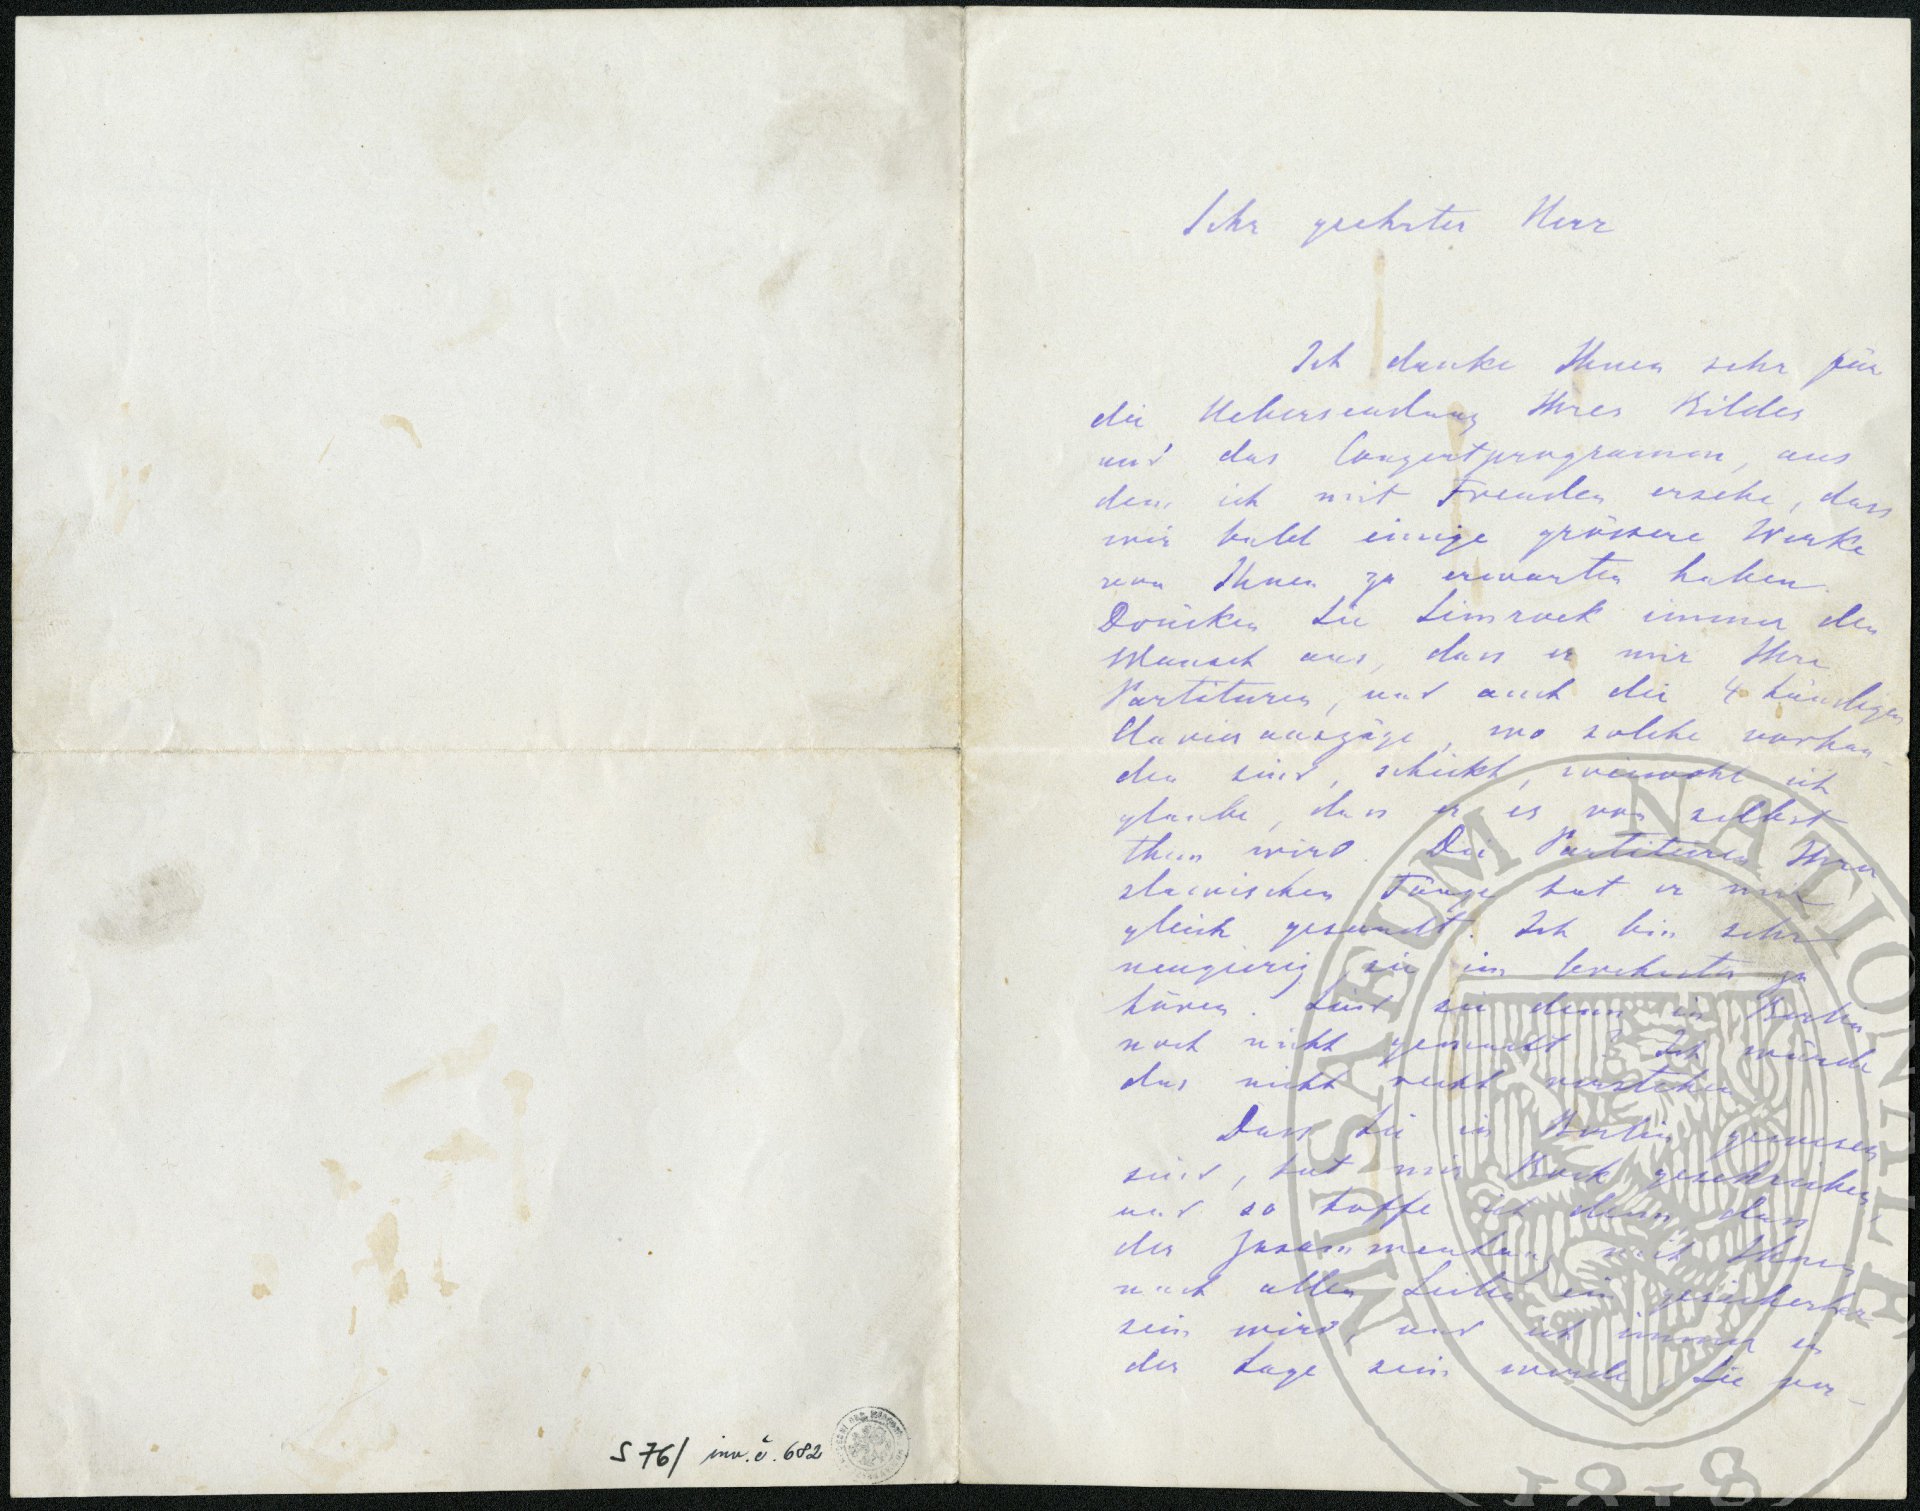 Sehr geehrter Herr
Ich danke Ihnen sehr für
die Uebersendung Ihres Bildes
und das Conzertprogramm, aus
dem ich mit Freuden ersehe, dass
wir bald einige grössere Werke
von Ihnen zu erwarten haben.
Drücken Sie Simrock immer den
Wunsch aus, dass er mir Ihre
Partituren, und auch die 4 händigen
Clavierauszüge, wo solche vorhan-
den sind, schickt, wiewohl ich
glaube, dass er es von selbst
thun wird. Die Partituren Ihrer
slavischen Tänze hat er mir
gleich gesandt. Ich bin sehr
neugierig, sie im Orchester zu
hören. Sind sie denn in Berlin
noch nicht gemacht? Ich würde
das nicht recht verstehen
Dass Sie in Berlin gewesen
sind, hat mir Bock geschrieben,
und so hoffe ich denn, dass
der Zusammenhang mit Ihnen
nach allen Seiten ein gesicherter
sein wird, und ich immer in
der Lage sein werde, Sie ver-
S 76/ inv. č. 682
MUSAEUM NATIONALE
1818